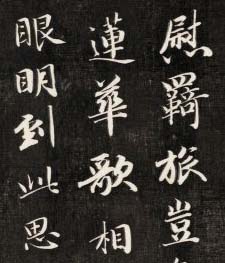 慰羇旅豈
蓮華歌相
眼明到此思